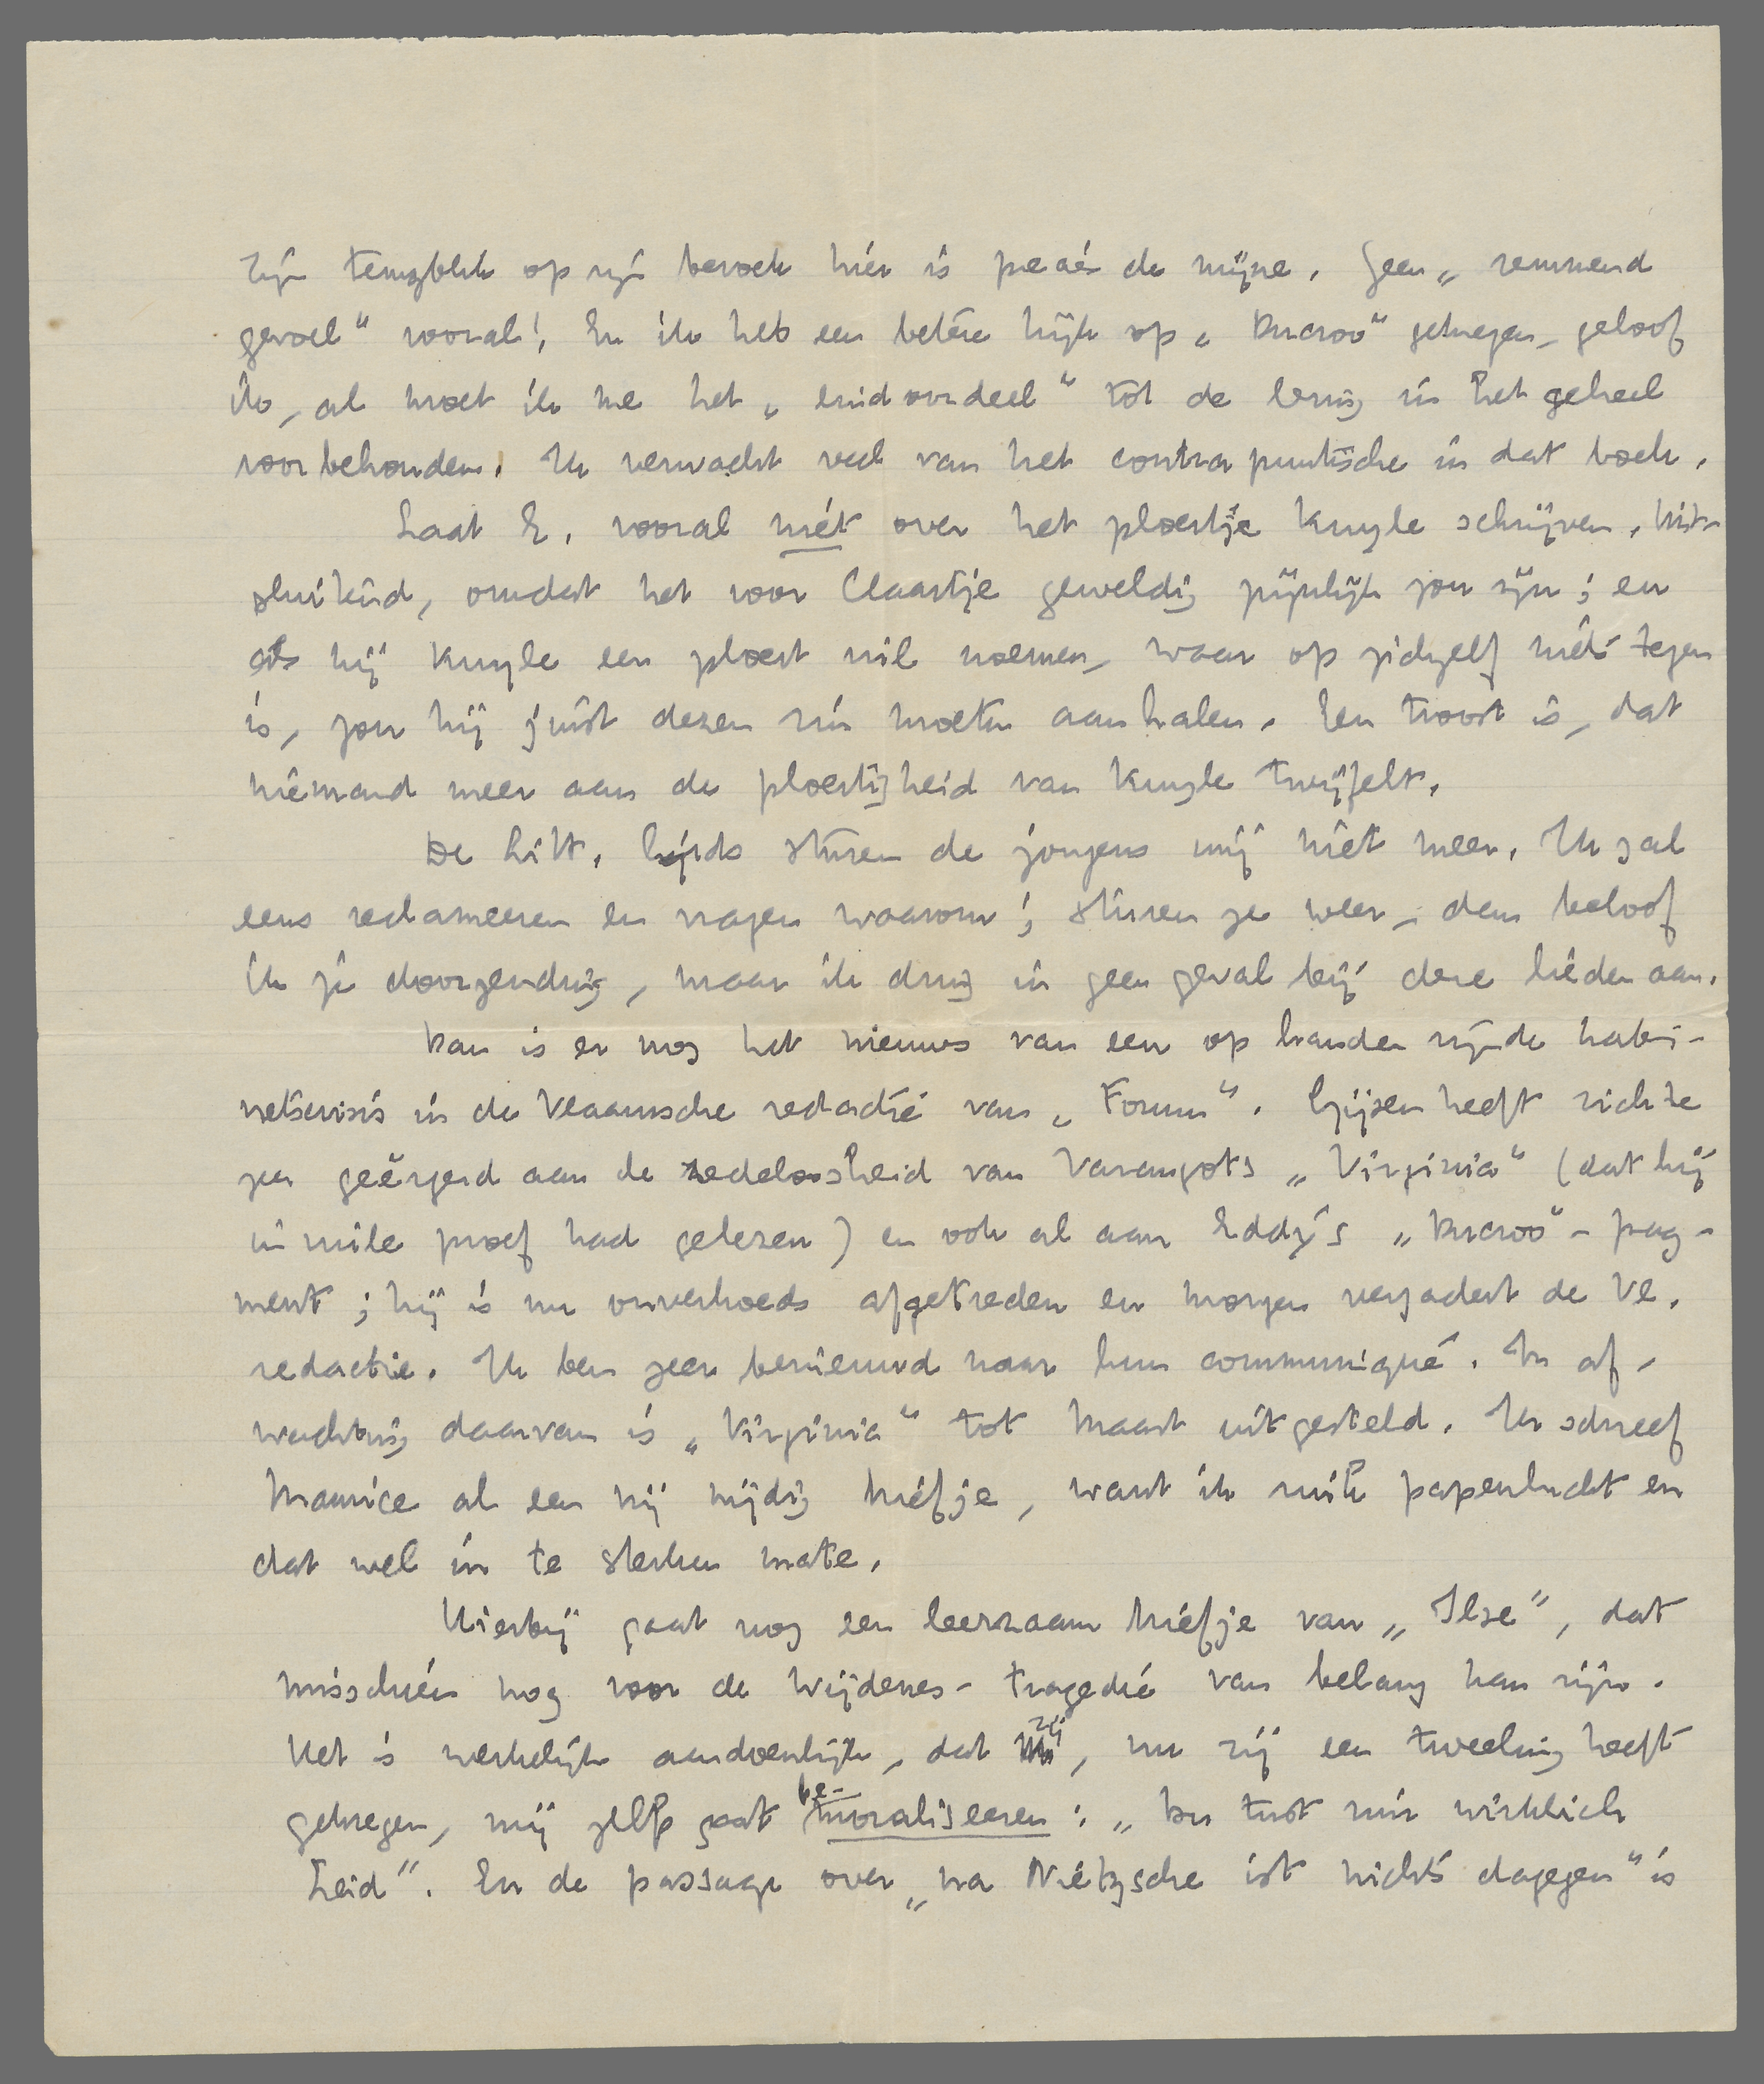 Zijn terugblik op zijn bezoek hier is precies de mijne. Geen „remmend
gevoel” vooral! En ik heb een betere kijk op „Ducroo” gekregen, geloof
ik, al moet ik me het „eindoordeel” tot de lezing in het geheel
voorbehouden. Ik verwacht veel van het contrapuntische in dat boek.
Laat E. vooral niét over het ploertje Kuyle schrijven. Uit-
sluitend, omdat het voor Claartje geweldig pijnlijk zou zijn; en
als hij Kuyle een ploert wil noemen, waar op zichzelf niets tegen
is, zou hij juist dezen zin moeten aanhalen. Een troost is, dat
niemand meer aan de ploertigheid van Kuyle twijfelt.
De Litt. Gids sturen de jongens mij niet meer. Ik zal
eens reclameeren en vragen waarom; sturen ze weer, dan beloof
ik je doorzending, maar ik dring in geen geval bij deze lieden aan.
Dan is er nog het nieuws van een op handen zijnde kabi-
netscrisis in de Vlaamsche redactie van „Forum”. Gijsen heeft zich te
zeer geërgerd aan de zedeloosheid van Varangots „Virginia” (dat hij
in vuile proef had gelezen) en ook al aan Eddy's „Ducroo”-frag-
ment; hij is nu onverhoeds afgetreden en morgen vergadert de Vl.
redactie. Ik ben zeer benieuwd naar hun communiqué. In af-
wachting daarvan is „Virginia” tot Maart uitgesteld. Ik schreef
Maurice al een vrij nijdig briefje, want ik ruik papenlucht en
dat wel in te sterken mate.
Hierbij gaat nog een leerzaam briefje van „Ilse”, dat
misschien nog voor de Wijdenes-tragedie van belang kan zijn.
Het is werkelijk aandoenlijk, dat zij, nu zij een tweeling heeft
gekregen, mij zelfs gaat be-moraliseeren: „Du tust mir wirklich
Leid”. En de passage over „na Nietzsche ist nichts dagegen” is